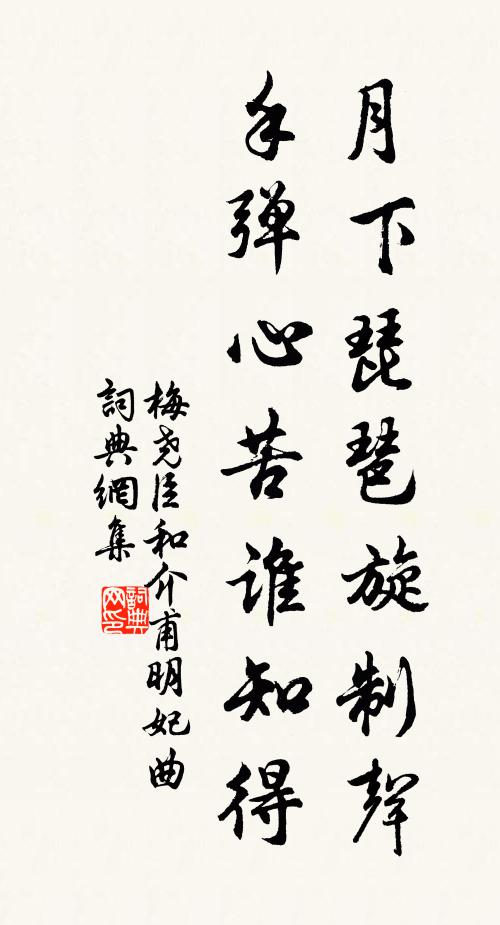 月下琵琶旋制聲
手弹心苦誰知得
梅尧臣和介甫明妃曲
詞典網集
詞典
网印